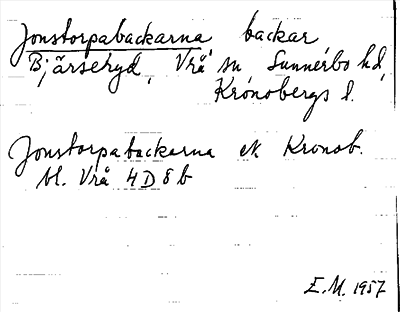 Jonstorpabackarna backar
Bjärseryd, Vrå sn Sunnerbo hd,
Kronobergs l.
Jonstorpabackarna ek Kronob.
bl. Vrå 4D8b
E.M. 1957